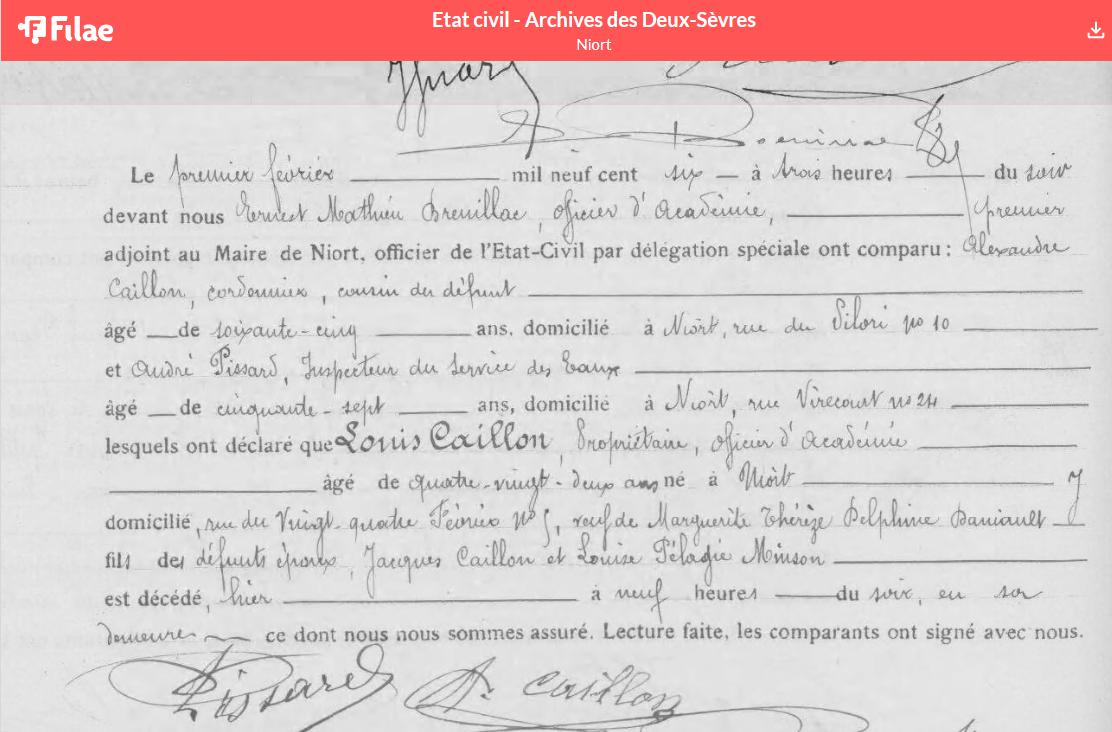 Filae
Etat civil - Archives des Deux-Sèvres
Niort
Le premier février mil neuf cent six à trois heures du soir
devant nous Ernest Mathieu Breuillac, officier d'Académie, premier
adjoint au Maire de Niort, officier de l'Etat-Civil par délégation spéciale ont comparu : Alexandre
Caillon, cordonnier, cousin du défunt
âgé de soixante-cinq ans, domicilié à Niort, rue du Pilori no 10
et André Pissard, Inspecteur du Service des Eaux
âgé de cinquante-sept ans, domicilié à Niort, rue Virecourt no 24
lesquels ont déclaré que Louis Caillon, Propriétaire, officier d'Académie
âgé de quatre-vingt-deux ans né à Niort y
domicilié, rue du Vingt-quatre Février no 5, veuf de Marguerite Thérèze Delphine Baniault
fils des défunts époux, Jacques Caillon et Louise Pélagie Minson
est décédé, hier à neuf heures du soir, en son
demeure ce dont nous nous sommes assuré. Lecture faite, les comparants ont signé avec nous.
Pissard A. Caillon